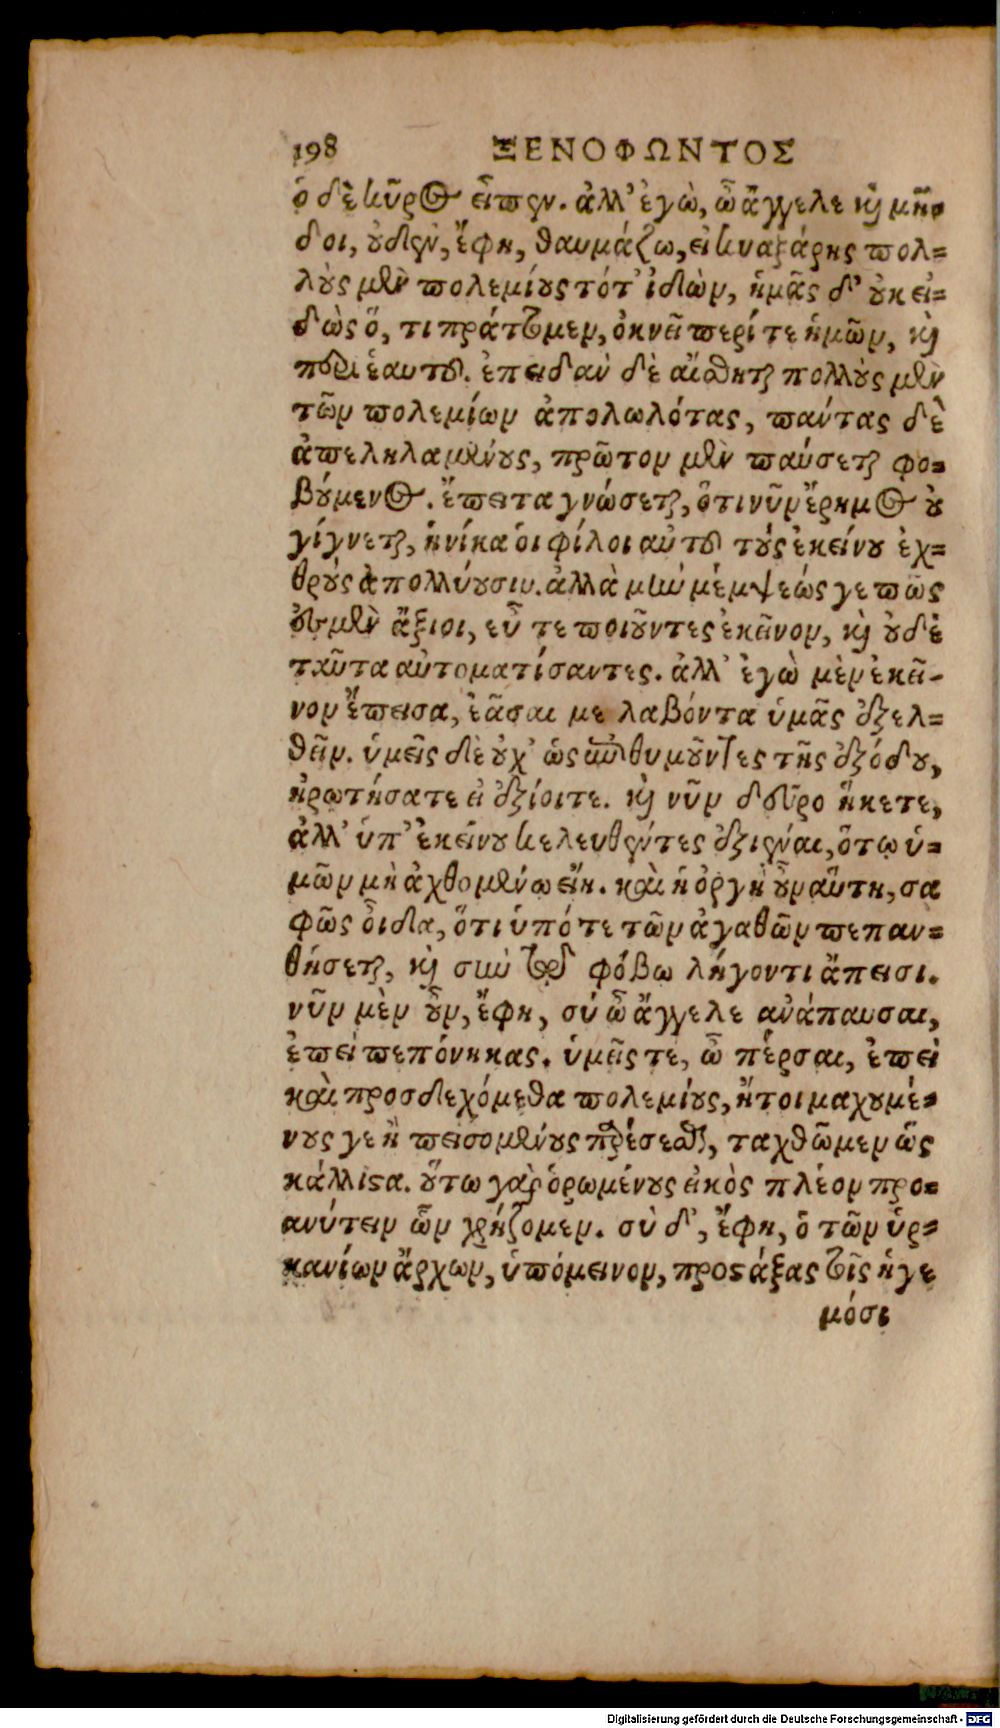 198 ΞΕΝΟΦΩΝΤΟΣ
ὁ δὲ κῦρος εἶπεν. ἀλλ' ἐγὼ, ὦ ἄγγελε καὶ μῆ-
δοι, οὐδὲν, ἔφη, θαυμάζω, εἰ κυαξάρης πολ-
λοὺς μὲν πολεμίους τότ' ἰδὼν, ἡμᾶς δ' οὐκ εἰ-
δὼς ὅ, τι πράττομεν, ὀκνεῖ περί τε ἡμῶν, καὶ
περὶ ἑαυτοῦ. ἐπειδὰν δὲ αἴσθηται πολλοὺς μὲν
τῶν πολεμίων ἀπολωλότας, πάντας δὲ
ἀπεληλαμένους, πρῶτον μὲν παύσεται φο-
βούμενος. ἔπειτα γνώσεται, ὅτι νῦν ἔρημος οὐ
γίγνεται, ἡνίκα οἱ φίλοι αὐτοῦ τοὺς ἐκείνου ἐχ-
θροὺς ἀπολλύουσιν. ἀλλὰ μὴν μέμψεώς γε πῶς
ἐσμὲν ἄξιοι, εὖ τε ποιοῦντες ἐκεῖνον, καὶ οὐδὲ
ταῦτα αὐτοματίσαντες. ἀλλ' ἐγὼ μὲν ἐκεῖ-
νον ἔπεισα, ἐᾶσαι με λαβόντα ὑμᾶς ἐξελ-
θεῖν. ὑμεῖς δὲ οὐχ' ὡς ἐπιθυμοῦντες τῆς ἐξόδου,
ἠρωτήσατε εἰ ἐξίοιτε. καὶ νῦν δεῦρο ἥκετε,
ἀλλ' ὑπ' ἐκείνου κελευθέντες ἐξιέναι, ὅτῳ ὑ-
μῶν μὴ ἀχθομένῳ εἴη. καὶ ἡ ὀργὴ οὖν αὕτη, σα
φῶς οἶδα, ὅτι ὑπό τε τῶν ἀγαθῶν πεπαν-
θήσεται, καὶ σὺν τῷ φόβῳ λήγοντι ἄπεισι.
νῦν μὲν οὖν, ἔφη, σύ ὦ ἄγγελε ἀνάπαυσαι,
ἐπεὶ πεπόνηκας. ὑμεῖς τε, ὦ πέρσαι, ἐπεὶ
καὶ προσδεχόμεθα πολεμίους, ἤτοι μαχουμέ-
νους γε ἢ πεισομένους παρέσεσθαι, ταχθῶμεν ὡς
κάλλιστα. οὕτω γὰρ ὁρωμένους εἰκὸς πλέον προ-
ανύτειν ὧν χρῄζομεν. σὺ δ', ἔφη, ὁ τῶν ὑρ-
κανίων ἄρχων, ὑπόμεινον, προστάξας τοῖς ἡγε
μόσι
Digitalisierung gefördert durch die Deutsche Forschungsgemeinschaft - DFG